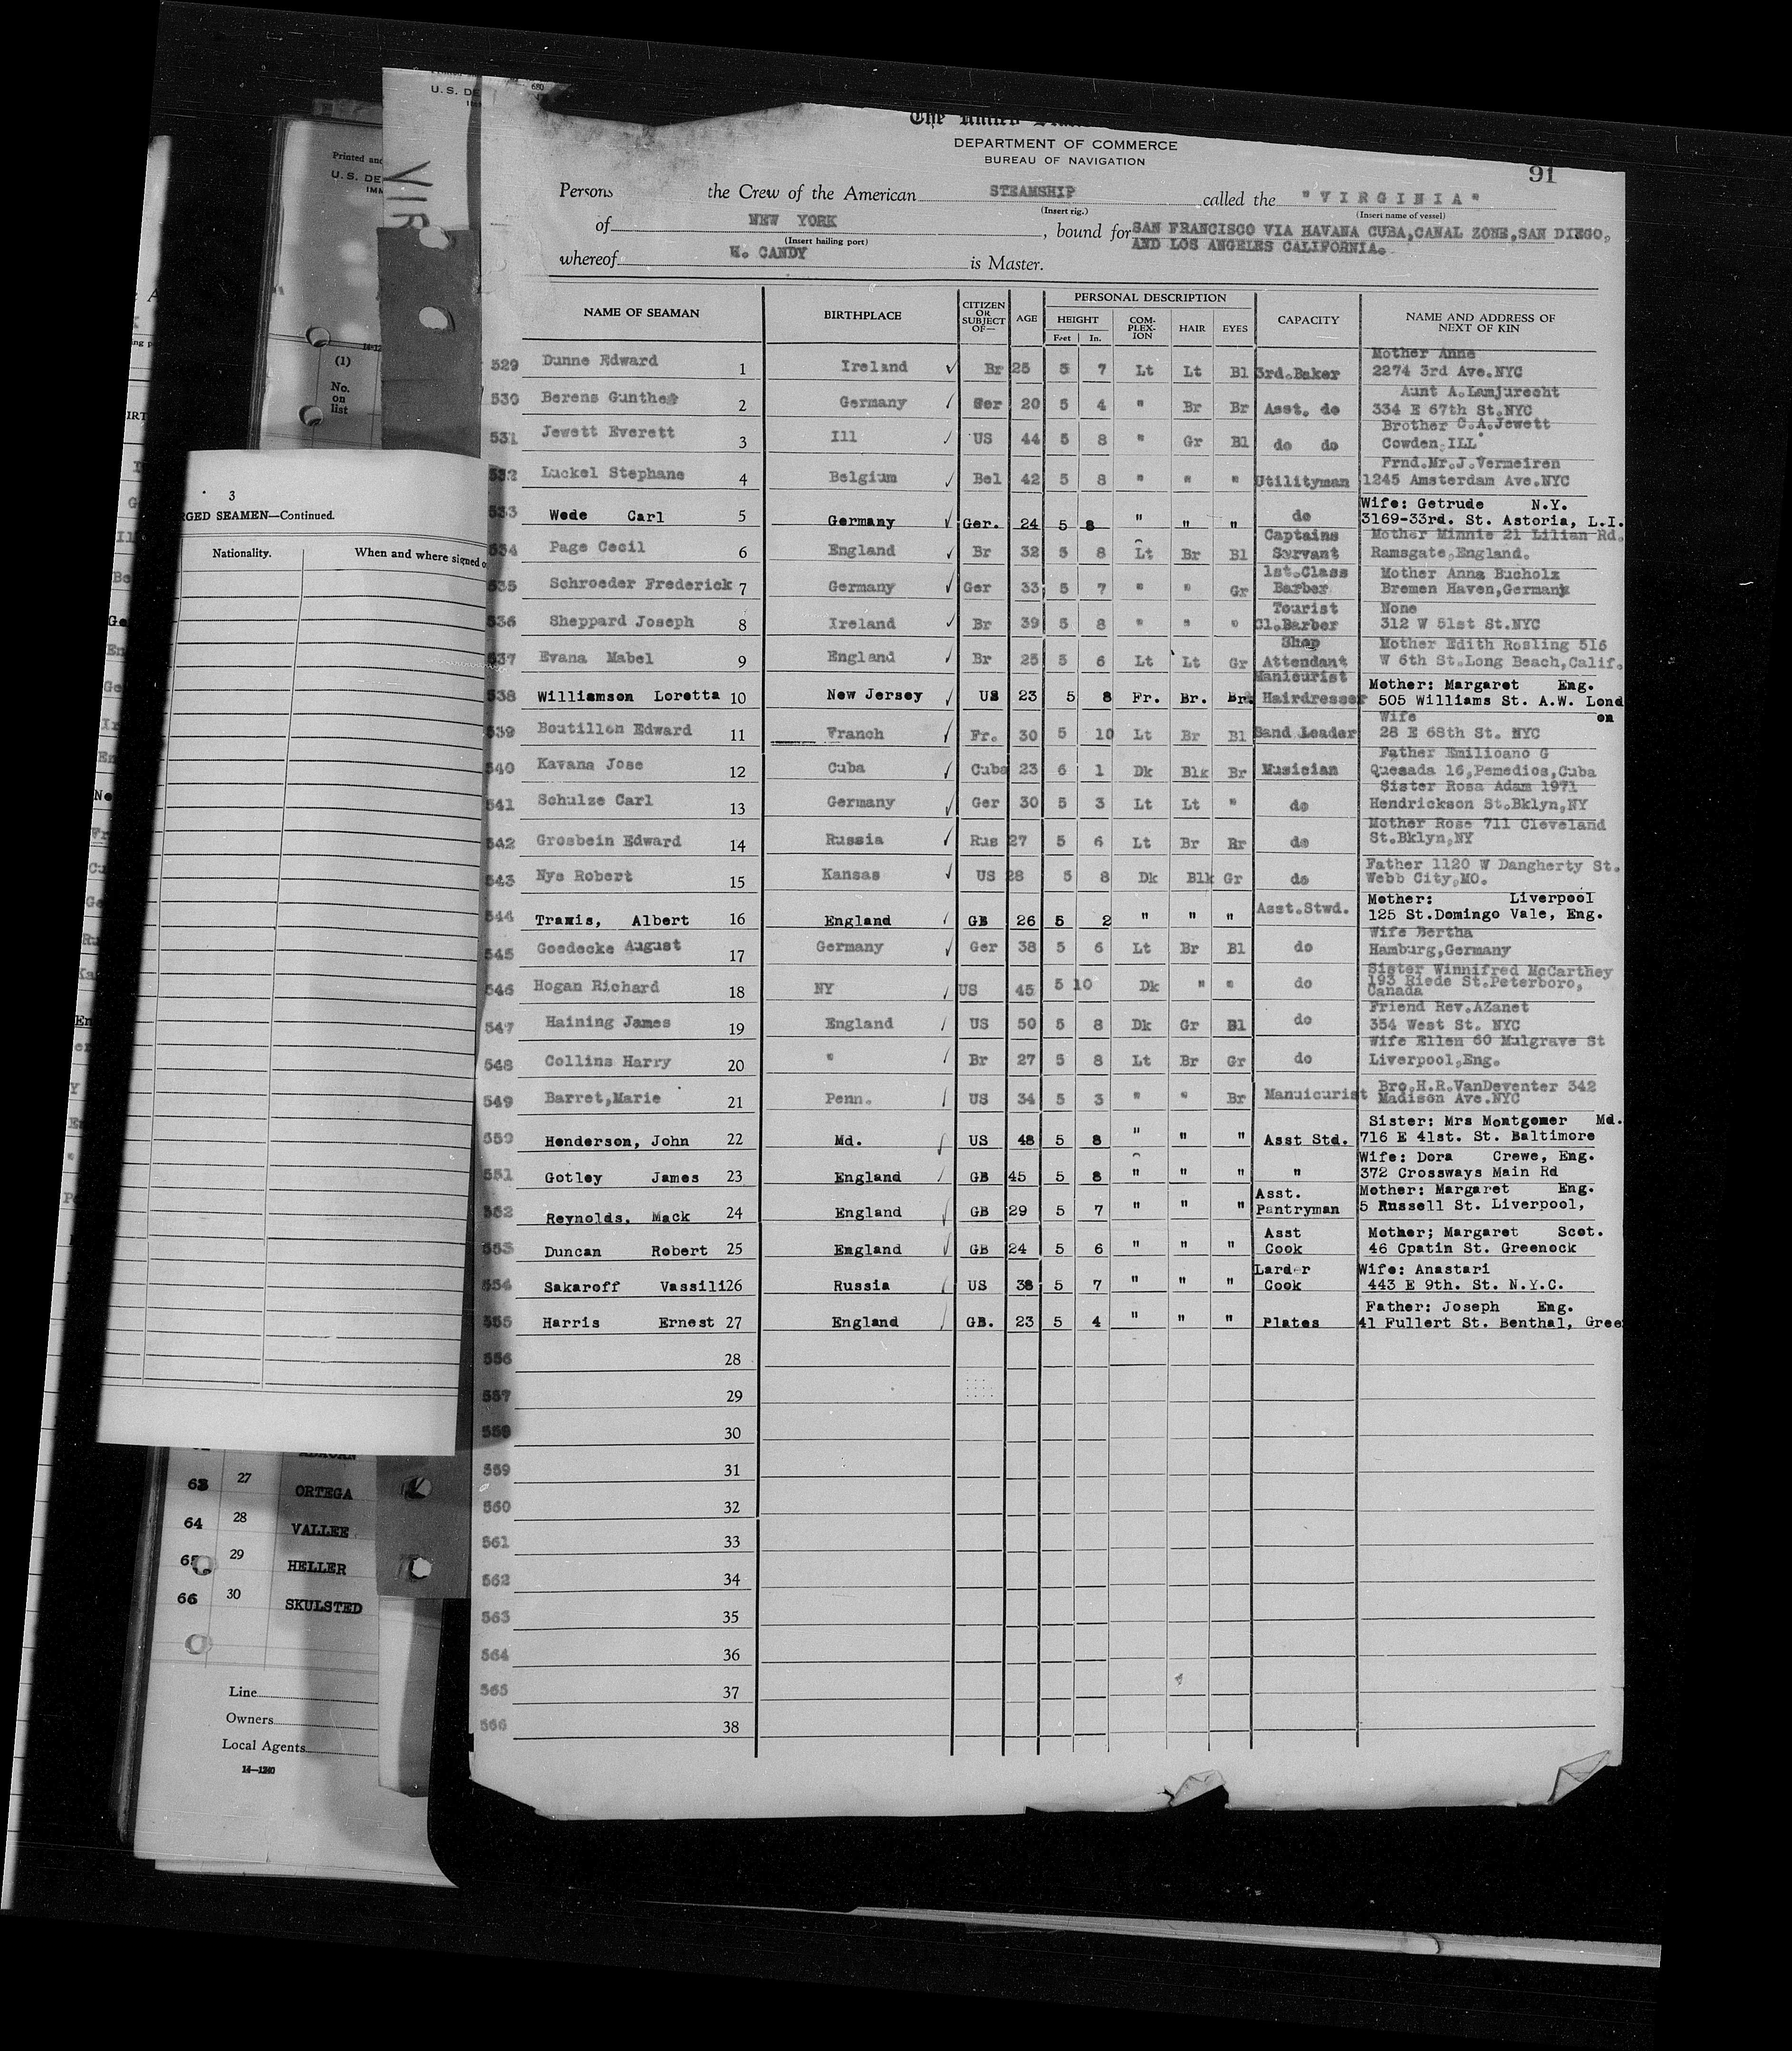 680
U.S. DE
91
DEPARTMENT OF COMMERCE
BUREAU OF NAVIGATION
Persons the Crew of the American STEAMSHIP called the "VIRGINIA"
(Insert rig.) (Insert name of vessel)
of NEW YORK, bound for SAN FRANCISCO VIA HAVANA CUBA,CANAL ZONE,SAN DIEGO,
(Insert hailing port) AND LOS ANGELES CALIFORNIA.
whereof H. CANDY is Master.
NAME OF SEAMAN BIRTHPLACE CITIZEN OR SUBJECT OF— AGE PERSONAL DESCRIPTION CAPACITY NAME AND ADDRESS OF NEXT OF KIN
HEIGHT COM-PLEX-ION HAIR EYES
Feet In.
Mother Anne
529 Dunne Edward 1 Ireland ✓ Br 25 5 7 Lt Lt Bl 3rd.Baker 2274 3rd Ave.NYC
Aunt A.Lamjurecht
530 Berens Gunther 2 Germany ✓ Ger 20 5 4 " Br Br Asst. do 334 E 67th St.NYC
Brother C.A.Jewett
531 Jewett Everett 3 Ill ✓ US 44 5 8 " Gr Bl do do Cowden,ILL
Frnd.Mr.J.Vermeiren
532 Luckel Stephane 4 Belgium ✓ Bel 42 5 8 " " " Utilityman 1245 Amsterdam Ave.NYC
Wife: Getrude N.Y.
533 Wede Carl 5 Germany ✓ Ger. 24 5 8 " " " do 3169-33rd. St. Astoria, L.I.
Captains Mother Minnie 21 Lilian Rd.
534 Page Cecil 6 England ✓ Br 32 5 8 Lt Br Bl Servant Ramsgate,England.
1st.Class Mother Anna Bucholz
535 Schroeder Frederick 7 Germany ✓ Ger 33 5 7 " " Gr Barber Bremen Haven,Germany
Tourist None
536 Sheppard Joseph 8 Ireland ✓ Br 39 5 8 " " " Cl.Barber 312 W 51st St.NYC
Shop Mother Edith Rosling 516
537 Evana Mabel 9 England ✓ Br 25 5 6 Lt Lt Gr Attendant W 6th St.Long Beach,Calif.
Manicurist Mother: Margaret Eng.
538 Williamson Loretta 10 New Jersey ✓ US 23 5 8 Fr. Br. Br. Hairdresser 505 Williams St. A.W. Lond
Wife on
539 Boutillon Edward 11 Franch ✓ Fr. 30 5 10 Lt Br Bl Band Leader 28 E 68th St. NYC
Father Emilicano G
540 Kavana Jose 12 Cuba ✓ Cuba 23 6 1 Dk Blk Br Musician Quesada 16,Pemedios,Cuba
Sister Rosa Adam 1971
541 Schulze Carl 13 Germany ✓ Ger 30 5 3 Lt Lt " do Hendrickson St.Bklyn,NY
Mother Rose 711 Cleveland
542 Grosbein Edward 14 Russia ✓ Rus 27 5 6 Lt Br Br do St.Bklyn,NY
Father 1120 W Dangherty St.
543 Nye Robert 15 Kansas ✓ US 28 5 8 Dk Blk Gr do Webb City,MO.
Mother: Liverpool
544 Trawis, Albert 16 England ✓ GB 26 5 2 " " " Asst.Stwd. 125 St.Domingo Vale, Eng.
Wife Bertha
545 Goedecke August 17 Germany ✓ Ger 38 5 6 Lt Br Bl do Hamburg,Germany
Sister Winnifred McCarthey
546 Hogan Richard 18 NY ✓ US 45 5 10 Dk " " do 193 Riede St.Peterboro,
Canada
Friend Rev.AZanet
547 Haining James 19 England ✓ US 50 5 8 Dk Gr Bl do 354 West St. NYC
Wife Ellen 60 Mulgrave St
548 Collins Harry 20 " ✓ Br 27 5 8 Lt Br Gr do Liverpool,Eng.
Bro.H.R.VanDeventer 342
549 Barret,Marie 21 Penn. ✓ US 34 5 3 " " Br Manuicurist Madison Ave.NYC
Sister: Mrs Montgomer Md.
550 Henderson, John 22 Md. ✓ US 48 5 8 " " " Asst Std. 716 E 41st. St. Baltimore
Wife: Dora Crewe, Eng.
551 Gotley James 23 England ✓ GB 45 5 8 " " " " 372 Crossways Main Rd
Asst. Mother: Margaret Eng.
552 Reynolds, Mack 24 England ✓ GB 29 5 7 " " " Pantryman 5 Russell St. Liverpool,
Asst Mother; Margaret Scot.
553 Duncan Robert 25 England ✓ GB 24 5 6 " " " Cook 46 Cpatin St. Greenock
Larder Wife: Anastari
554 Sakaroff Vassili 26 Russia ✓ US 38 5 7 " " " Cook 443 E 9th. St. N.Y.C.
Father: Joseph Eng.
555 Harris Ernest 27 England ✓ GB. 23 5 4 " " " Plates 41 Fullert St. Benthal, Gree
556 28
557 29
558 30
559 31
560 32
561 33
562 34
563 35
564 36
565 37
566 38
Printed and
U.S. DE
IMM
(1)
No. on list
3
RGED SEAMEN—Continued.
Nationality. When and where signed o
63 27 ORTEGA
64 28 VALLEE
65 29 HELLER
66 30 SKULSTED
Line
Owners
Local Agents
14—1240